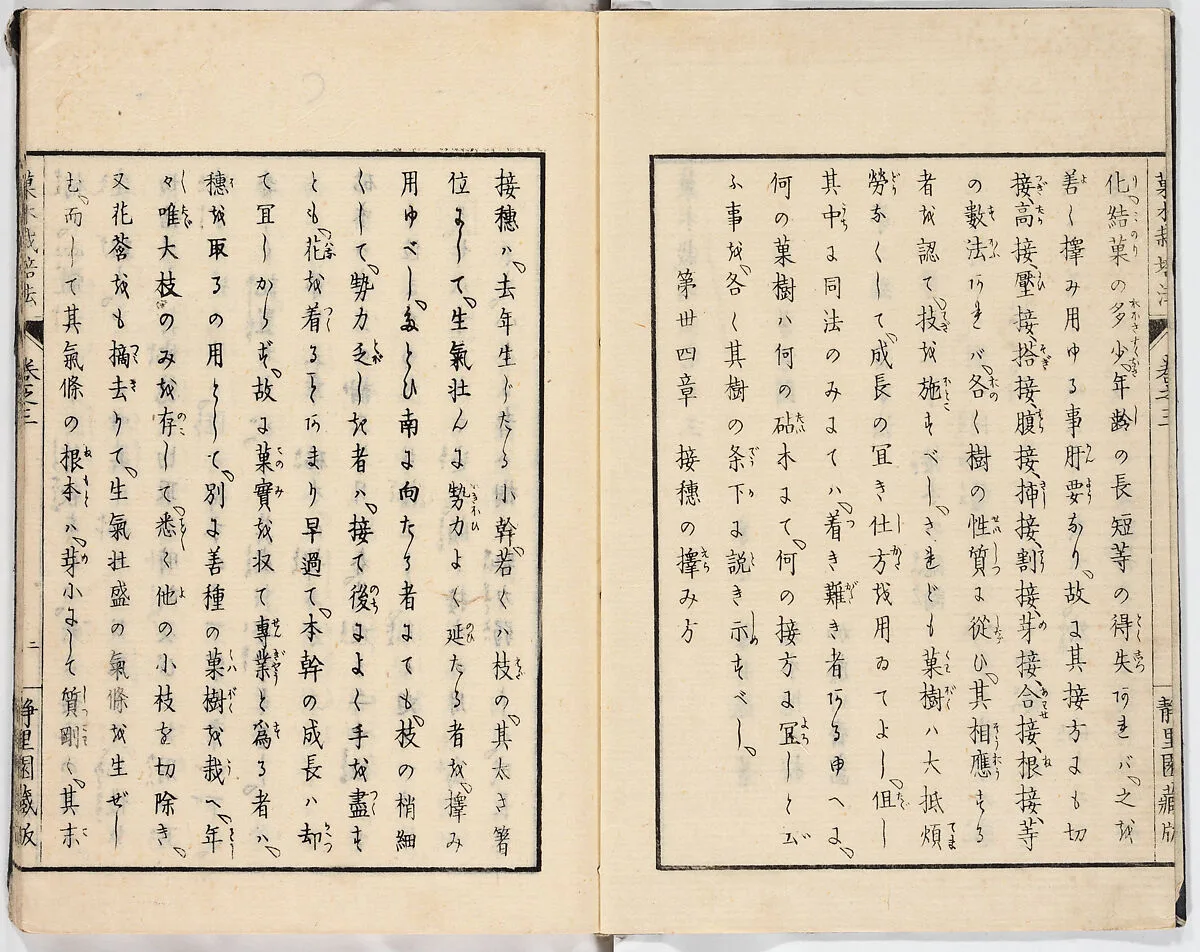 菓木栽培法 卷之三 靜里園藏版
化結菓の多少、年齢の長短等の得失アレバ、之を
善く擇み用ゆる事肝要なり、故に其接方にも切
接、高接、壓接、搭接、腹接、挿接、割接、芽接、合接、根接、等
の數法アレバ、各く樹の性質に從ひ、其相應する
者を認て、技を施すべし、されども菓樹ハ大抵煩
勞なくして、成長の冝き仕方を用ゐてよし、但し
其中に同法のみにてハ、着き難き者アるゆへに、
何の菓樹ハ何の砧木にて、何の接方に冝しと云
ふ事を、各く其樹の条下に説き示すべし、
第丗四章 接穗の擇み方
接穗ハ、去年生じたる小幹、若くハ枝の、其太さ箸
位にして、生氣壮んに勢力よく延たる者を、擇み
用ゆべし、たとひ南に向たる者にても、枝の梢細
くして、勢力乏しき者ハ、接て後によく手を盡す
とも、花を着ることアまり早過て、本幹の成長ハ却
て冝しからず、故に菓實を収て專業と爲る者ハ、
穗を取るの用として、別に善種の菓樹を栽へ、年
々唯大枝のみを存して、悉く他の小枝を切除き、
又花莟をも摘去りて、生氣壮盛の氣條を生ぜし
む、而して其氣條の根本ハ、芽小にして質剛く、其末
菓木栽培法 卷之三 二 靜里園藏版